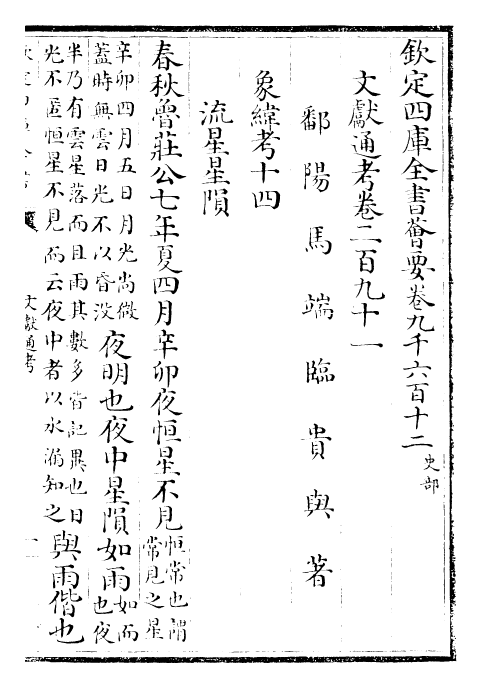 欽定四庫全書薈要卷九千六百十二 史部
文獻通考卷二百九十一
鄱陽馬端臨貴與著
象緯考十四
流星星隕
春秋魯莊公七年夏四月辛卯夜恒星不見 恒常也謂常見之星
辛卯四月五日月光尚微蓋時無雲日光不以昏没 夜明也夜中星隕如雨 如而也夜
半乃有雲星落而且雨其數多皆記異也日光不匿恒星不見而云夜中者以水漏知之 與雨偕也
文獻通考